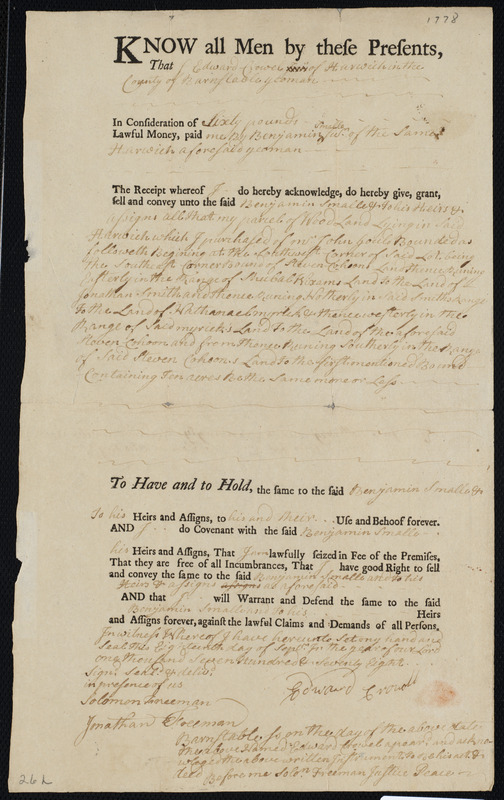 1778
KNOW all Men by theſe Preſents,
That I Edward Crowel of Harwich in the
County of Barnstable yeoman
In Conſideration of Sixty pounds
Lawful Money, paid me By Benjamin Smalle of the Same
Harwich aforesaid yeoman
The Receipt whereof I do hereby acknowledge, do hereby give, grant,
ſell and convey unto the ſaid Benjamin Smalle & to his Heirs &
assigns all that my parcel of Wood Land Lying in Said
Harwich which I purchased of John Bounded as
followeth Begining at the Southwest Corner of Said Lot being
the Southeast Corner Bound of Steven Cohoons Land thence Runing
Easterly in the Range of Land to the Land of
Jonathan Smith and thence Runing Notherly in Said Smiths Range
to the Land of & thence westerly in the
Range of Said Land to the Land of the aforesaid
Steven Cohoon and from thence Runing Southerly in the Range
of Said Steven Cohoons Land to the first mentioned Bound
Containing Ten acres be the Same more or Less
To Have and to Hold, the ſame to the ſaid Benjamin Smalle &
To his Heirs and Aſſigns, to his and their Uſe and Behoof forever.
AND I do Covenant with the ſaid Benjamin Smalle
his Heirs and Aſſigns, That I am lawfully ſeized in Fee of the Premiſes,
That they are free of all Incumbrances, That I have good Right to ſell
and convey the ſame to the ſaid Benjamin Smalle and to his
Heirs & assigns as aforesaid
AND that I will Warrant and Defend the ſame to the ſaid
Benjamin Smalle and to his Heirs
and Aſſigns forever, againſt the lawful Claims and Demands of all Perſons.
In witness Whereof I have hereunto Set my hand and
Seal this Eighteenth day of Sept. In the year of our Lord
one thousand Seven hundred & Seventy Eight
Sign. Seal. & deliv.
in presence of us
Edward Crowell
Solomon Freeman
Jonathan Freeman
Barnstable Ss on the day of the above date
the above Named Edward apear and acknow
the above written Instrument to be his act &
deed Before me Solo. Freeman Justice Peace
26 L